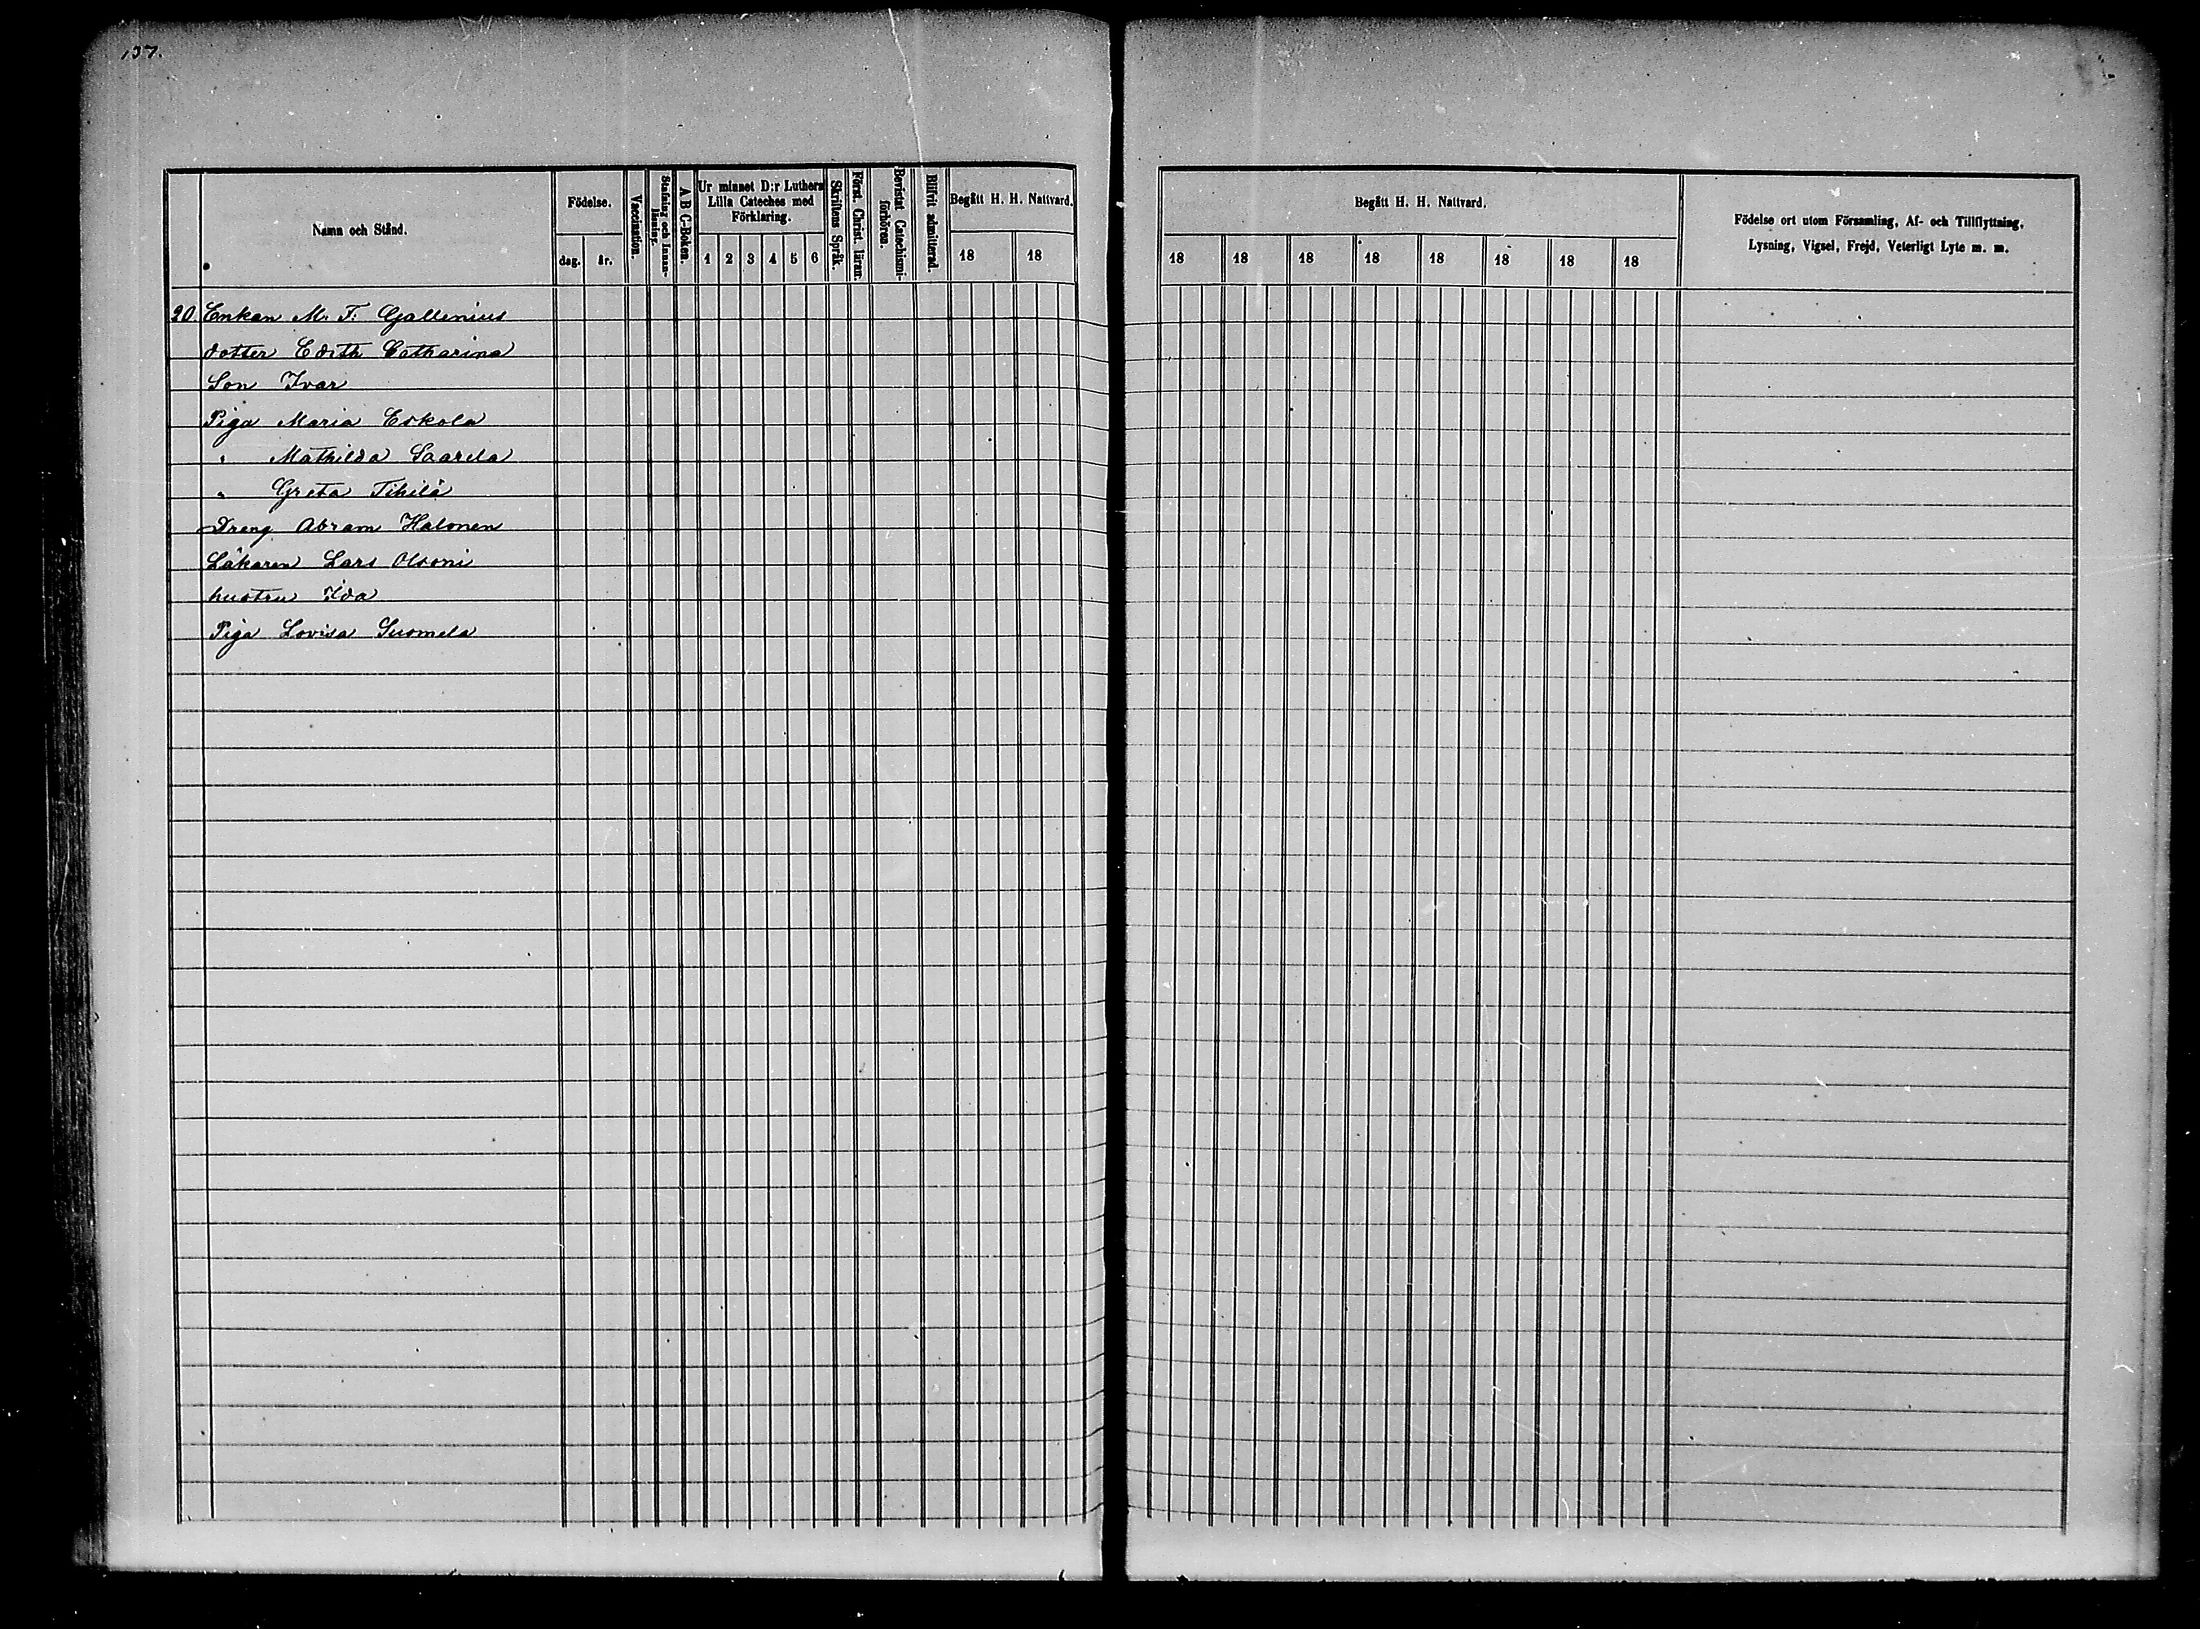 137.
Namn och Stånd.
Födelse.
dag.
år.
Vaccination.
Stafning och Innanläsning.
A B C-Boken.
Ur minnet D:r Luthers Lilla Cateches med Förklaring.
1 2 3 4 5 6
Skriftens Språk.
Först. Christ. läran.
Bevistat Catechismiförhören.
Blifvit admitterad.
Begått H. H. Nattvard.
18 18
Begått H. H. Nattvard.
18 18 18 18 18 18 18 18
Födelse ort utom Församling, Af- och Tillflyttning,
Lysning, Vigsel, Frejd, Veterligt Lyte m. m.
20. Enkan M. F. Gallenius
dotter Edith Catharina
Son Ivar
Piga Maria Eskola
" Mathilda Saarela
" Greta Tihilä
Dreng Abram Halonen
Läkaren Lars Olsoni
hustru Ida
Piga Lovisa Suomela